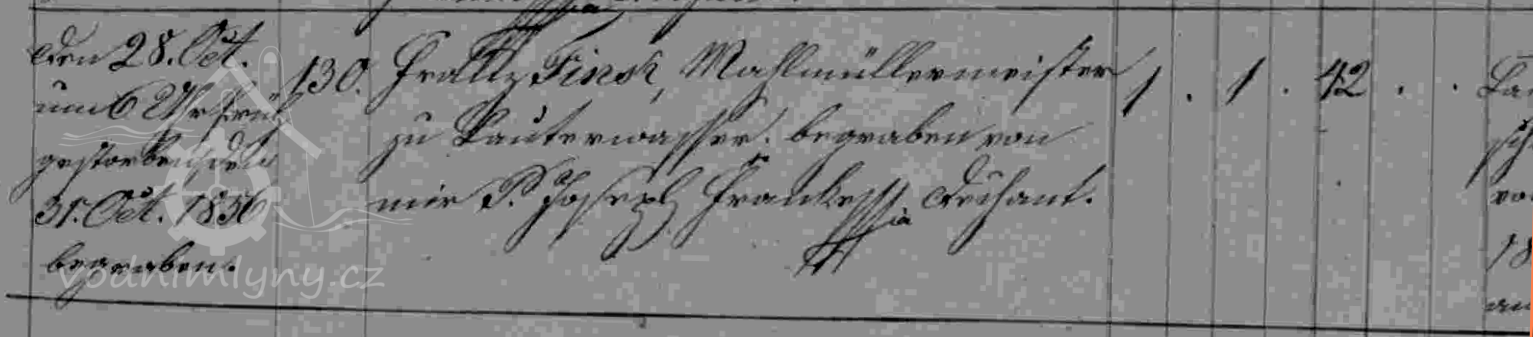 Den 28. Oct.
um 6 Uhr früh
gestorben, den
31. Oct. 1856
begraben.
130.
Frantz Finck, Mahlmüllermeister
zu Lauterwasser. begraben von
mir P. Joseph Franke mpia Dechant.
1 . 1 . 42 . .
vodnimlyny.cz